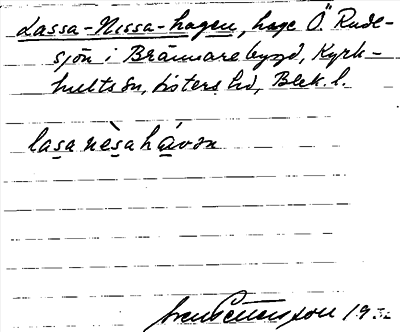 Lassa-Nissa-hagen, hage Ö. Rude-
sjön i Brännarebygd, Kyrk-
hults sn, Listers hd, Blek. l.
lasa nèsa hávan
Sven Pettersson 19